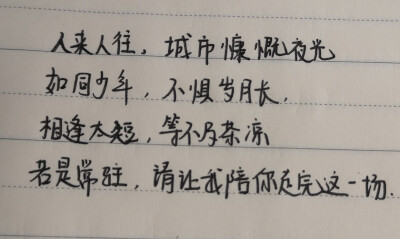 人来人往，城市慷慨夜光
如同少年，不惧岁月长，
相逢太短，等不与茶凉
若是常驻，请让我陪你走完这一场.